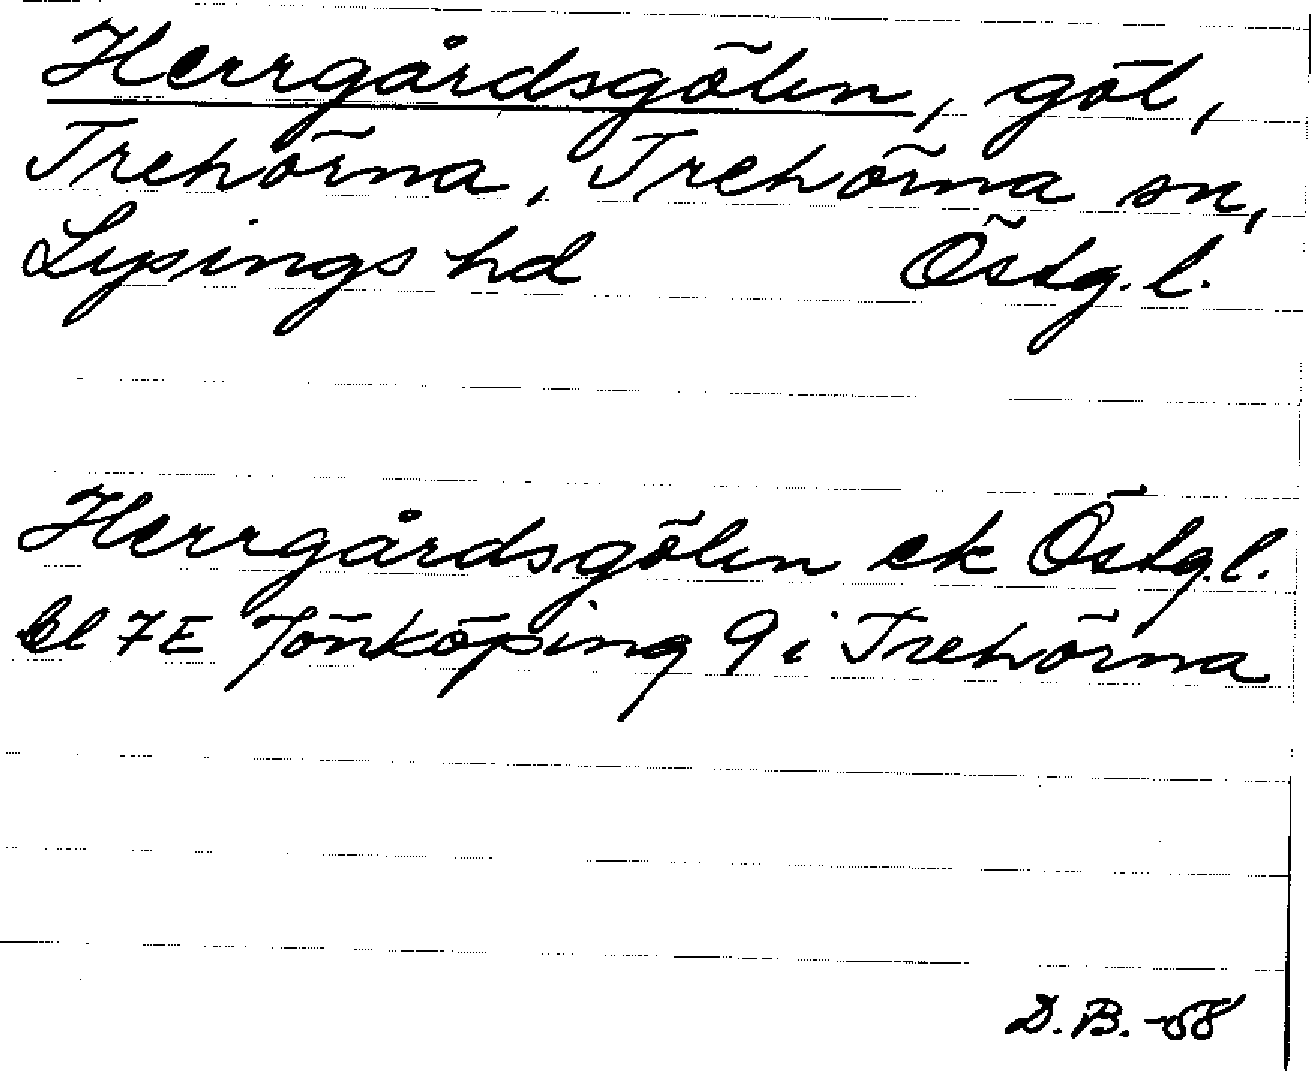 Herrgårdsgölen, göl,
Trehörna, Trehörna sn,
Lysings hd Östg. l.
Herrgårdsgölen ek Östg. l.
bl 7E Jönköping 9 i Trehörna
D. B. -58